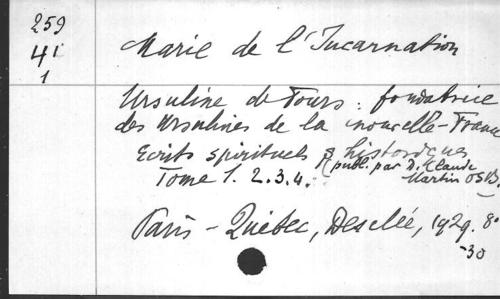 259
41
1
Marie de l'Incarnation
Ursuline de Tours : fondatrice
des Ursulines de la nouvelle-France
Ecrits spirituels & historiques
(publ. par D. Claude
Martin OSB.)
Tome 1. 2. 3. 4.
Paris - Québec, Desclée, 1929. 8°
-30